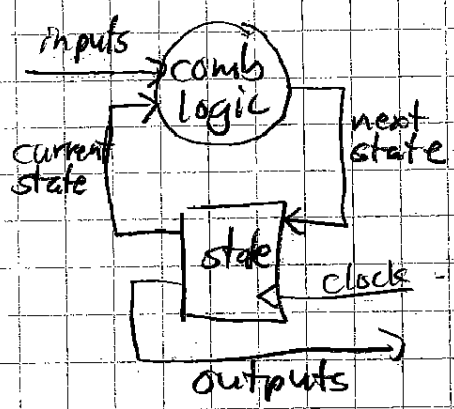 inputs
comb
logic
next
state
current
state
state
clock
outputs